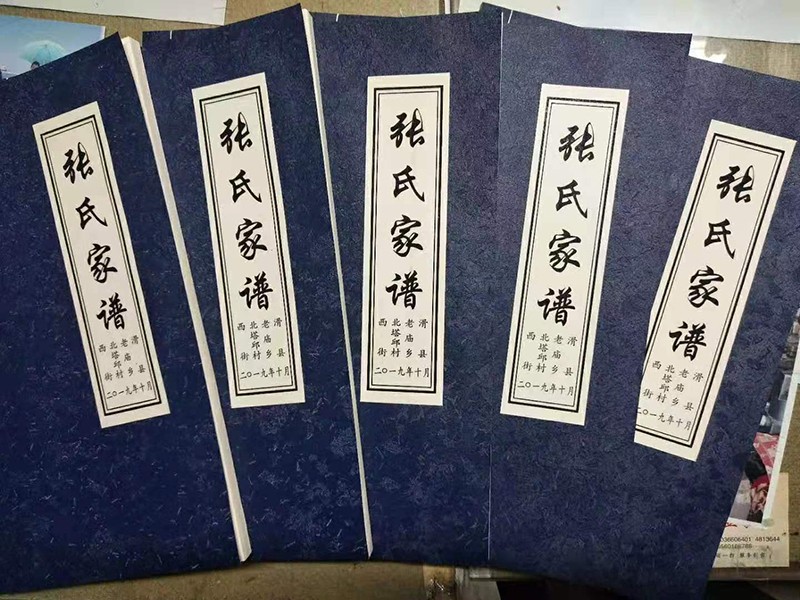 张氏家谱
滑县
老庙乡
北塔邱村
西街
二〇一九年十月
张氏家谱
滑县
老庙乡
北塔邱村
西街
二〇一九年十月
张氏家谱
滑县
老庙乡
北塔邱村
西街
二〇一九年十月
张氏家谱
滑县
老庙乡
北塔邱村
西街
二〇一九年十月
张氏家谱
滑县
老庙乡
北塔邱村
西街
二〇一九年十月
4813644